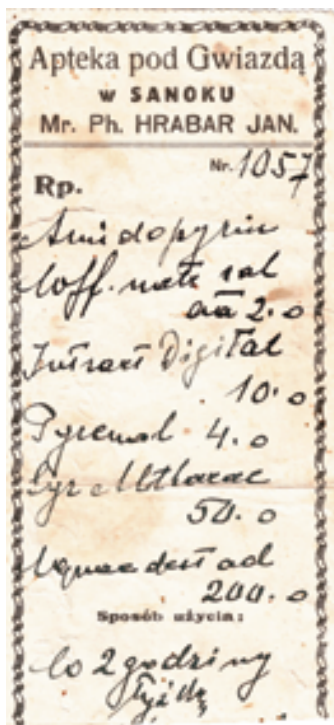 Apteka pod Gwiazdą
w SANOKU
Mr. Ph. HRABAR JAN.
Nr. 1057
Rp.
Amidopyrin
Coff. natr sal
aa 2.0
Intract Digital
10.0
4.0
Syr
50.0
Aquae dest ad
200.0
Sposób użycia:
Co 2 godziny
łyżkę